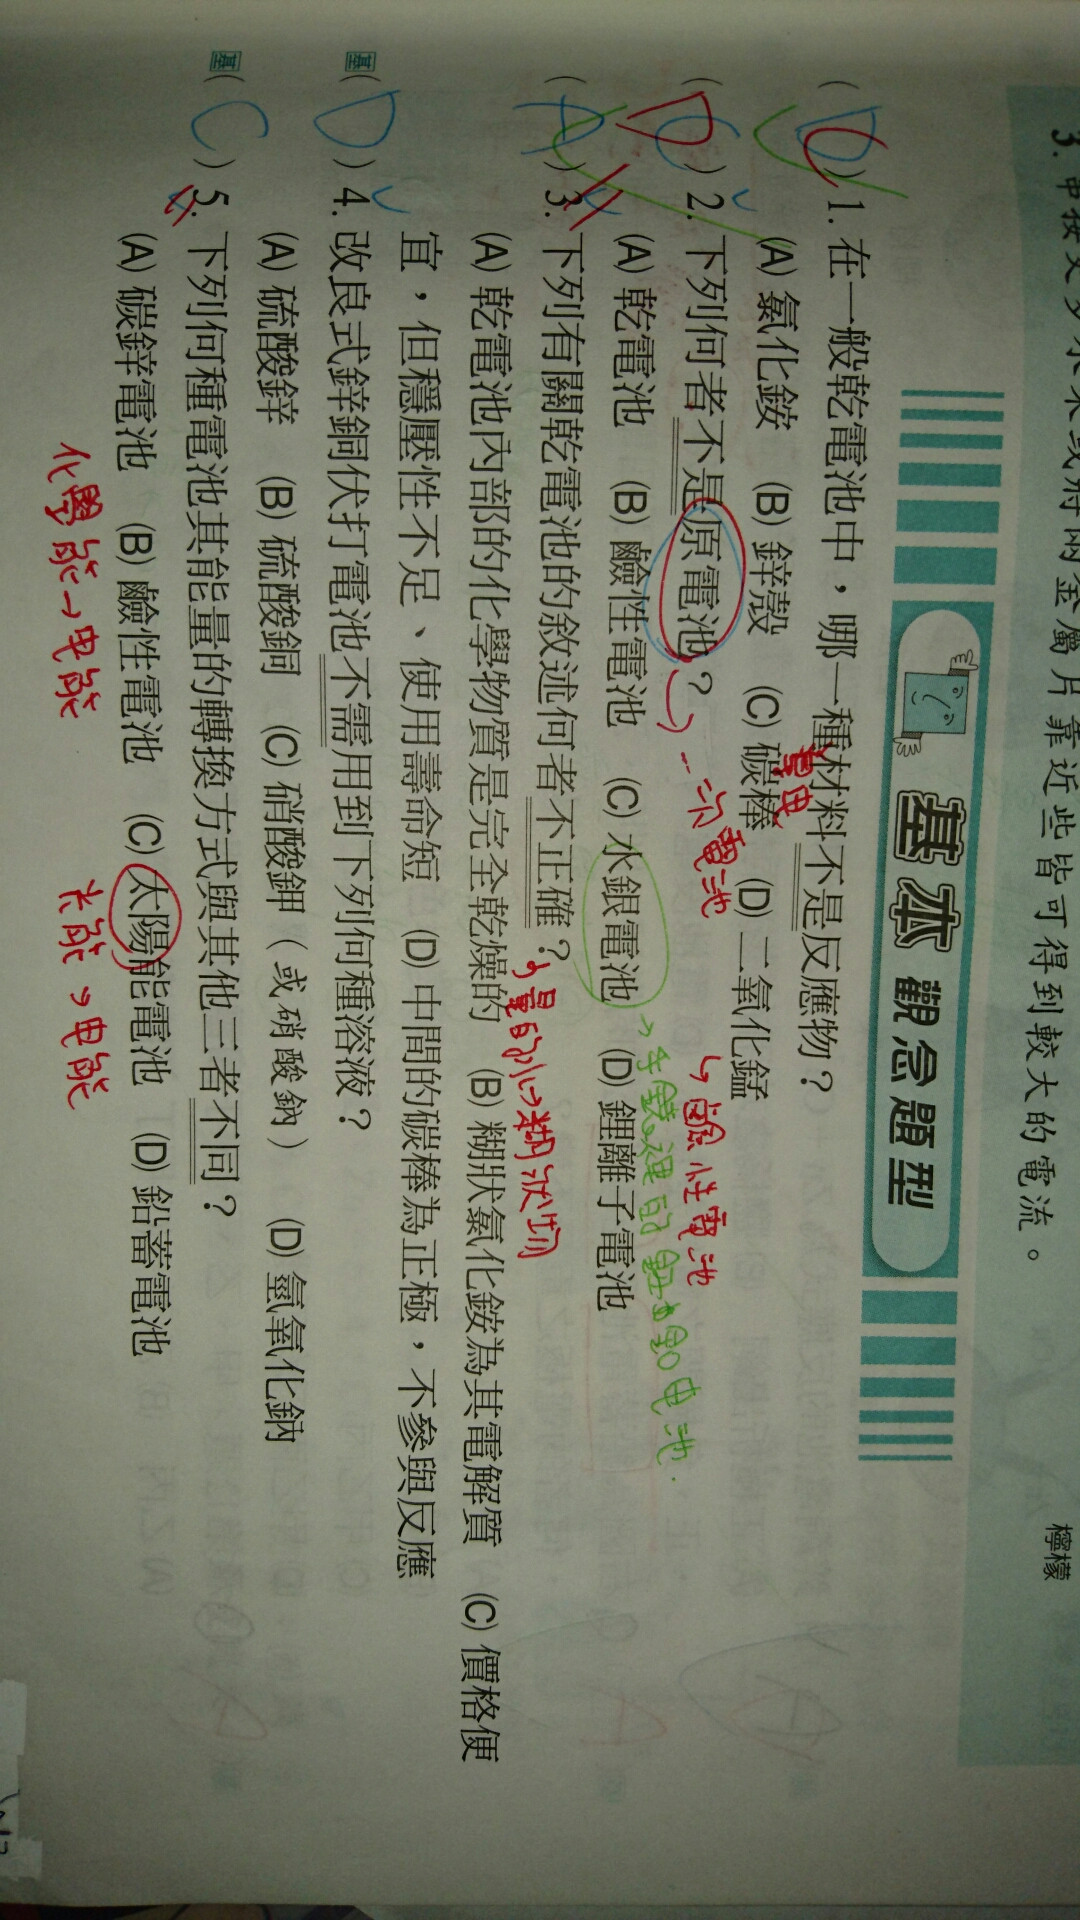 3.串接
兩金屬片靠近些皆可得到較大的電流。
檸檬
基本觀念題型
( C ) 1. 在一般乾電池中，哪一種材料不是反應物？
導電
(A) 氯化銨 (B) 鋅殼 (C) 碳棒 (D) 二氧化錳
( D ) 2. 下列何者不是原電池？
一次電池
鹼性電池
(A) 乾電池 (B) 鹼性電池 (C) 水銀電池 (D) 鋰離子電池
手錶裡的鈕扣电池.
( A ) 3. 下列有關乾電池的敘述何者不正確？
糊狀物
(A) 乾電池內部的化學物質是完全乾燥的 (B) 糊狀氯化銨為其電解質 (C) 價格便
宜，但穩壓性不足、使用壽命短 (D) 中間的碳棒為正極，不參與反應
基( D ) 4. 改良式鋅銅伏打電池不需用到下列何種溶液？
(A) 硫酸鋅 (B) 硫酸銅 (C) 硝酸鉀（或硝酸鈉） (D) 氫氧化鈉
基( C ) 5. 下列何種電池其能量的轉換方式與其他三者不同？
(A) 碳鋅電池 (B) 鹼性電池 (C) 太陽能電池 (D) 鉛蓄電池
化學能→电能
光能→电能